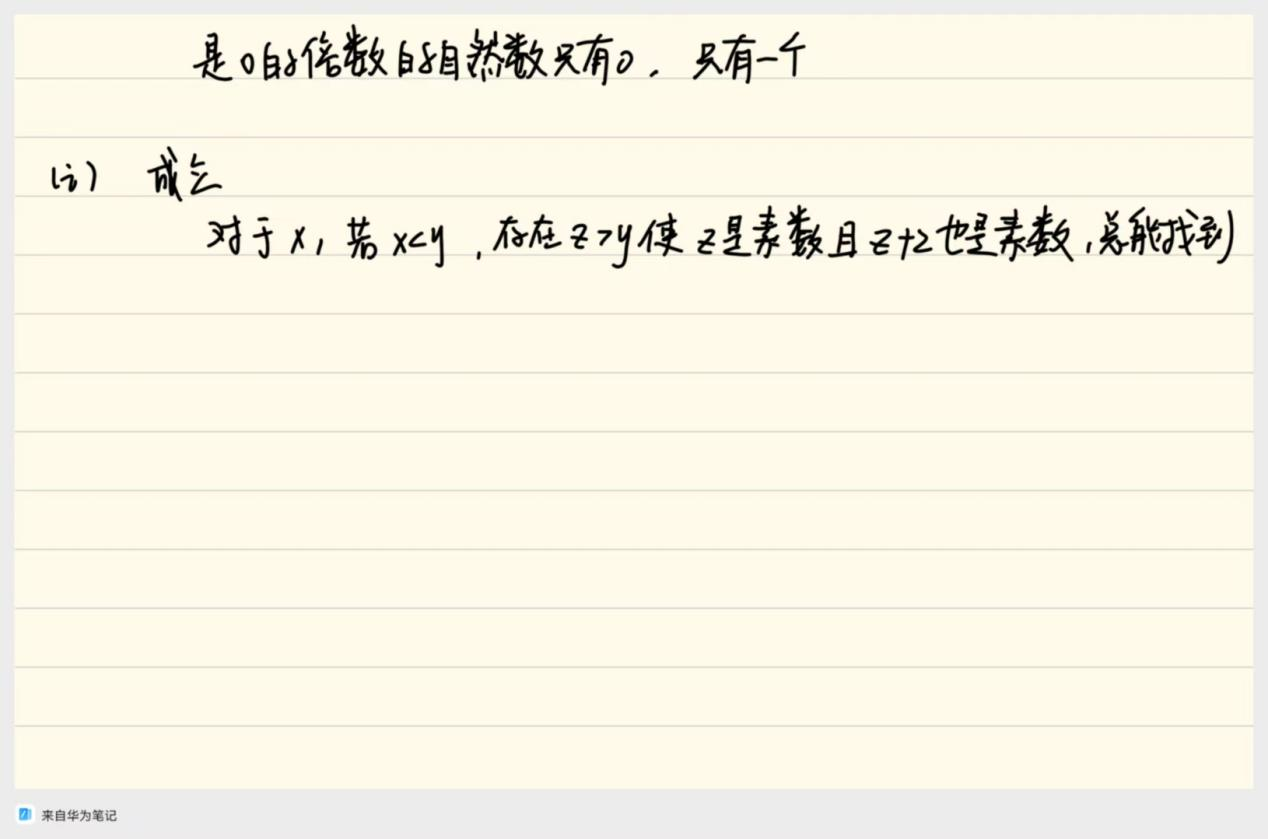 是0的倍数的自然数只有0．只有一个
(i) 成立
对于x，若x<y，存在z>y使z是素数且z+2也是素数，总能找到
来自华为笔记